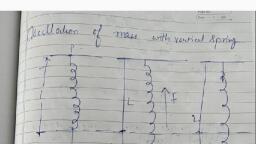 Oscillation of mass with vertical spring
P
L
F